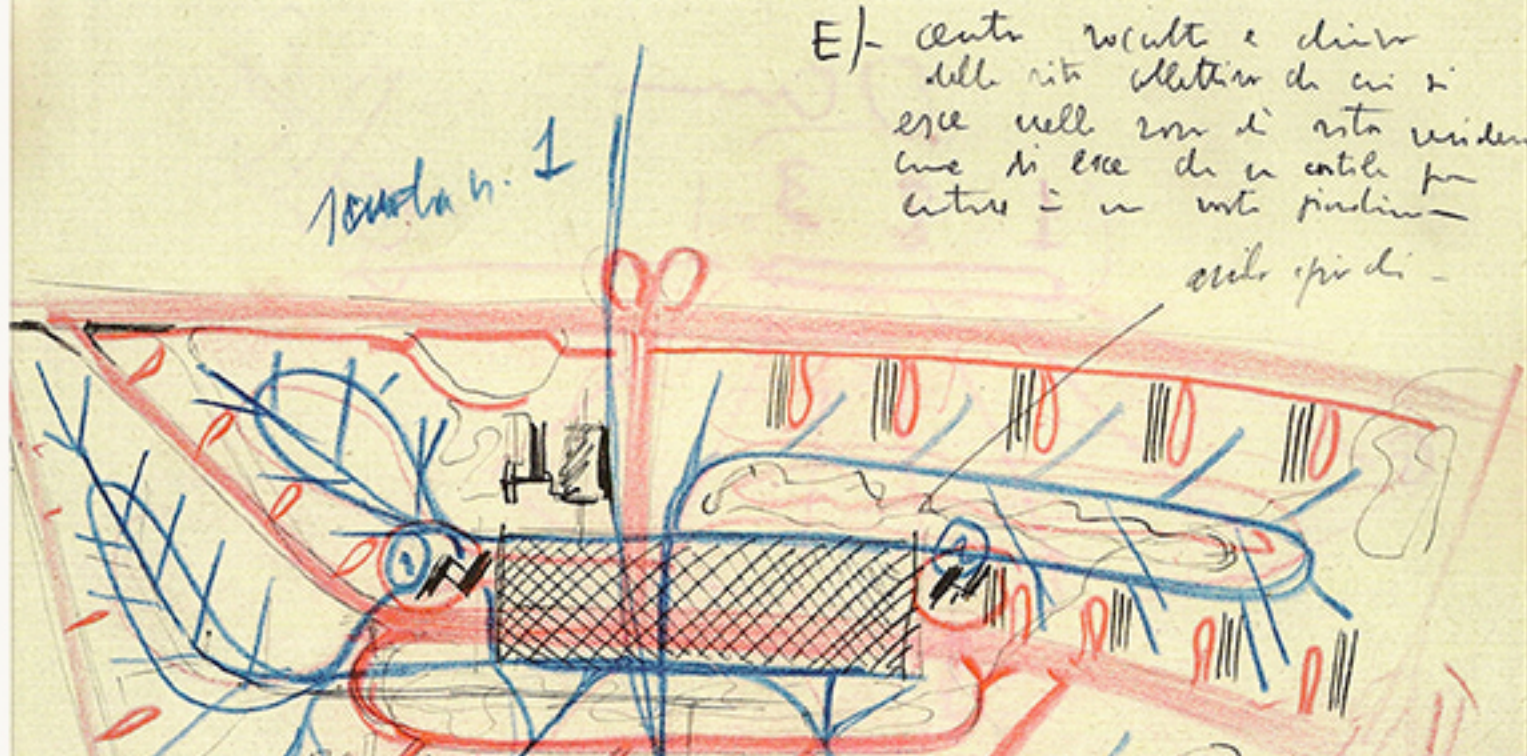 E)- centro raccolto e chiuso
della vita collettiva da cui si
esce nella zona di vita
come si esce da un cortile per
entrare in un vasto giardino
scuola n. 1
asilo
2
2